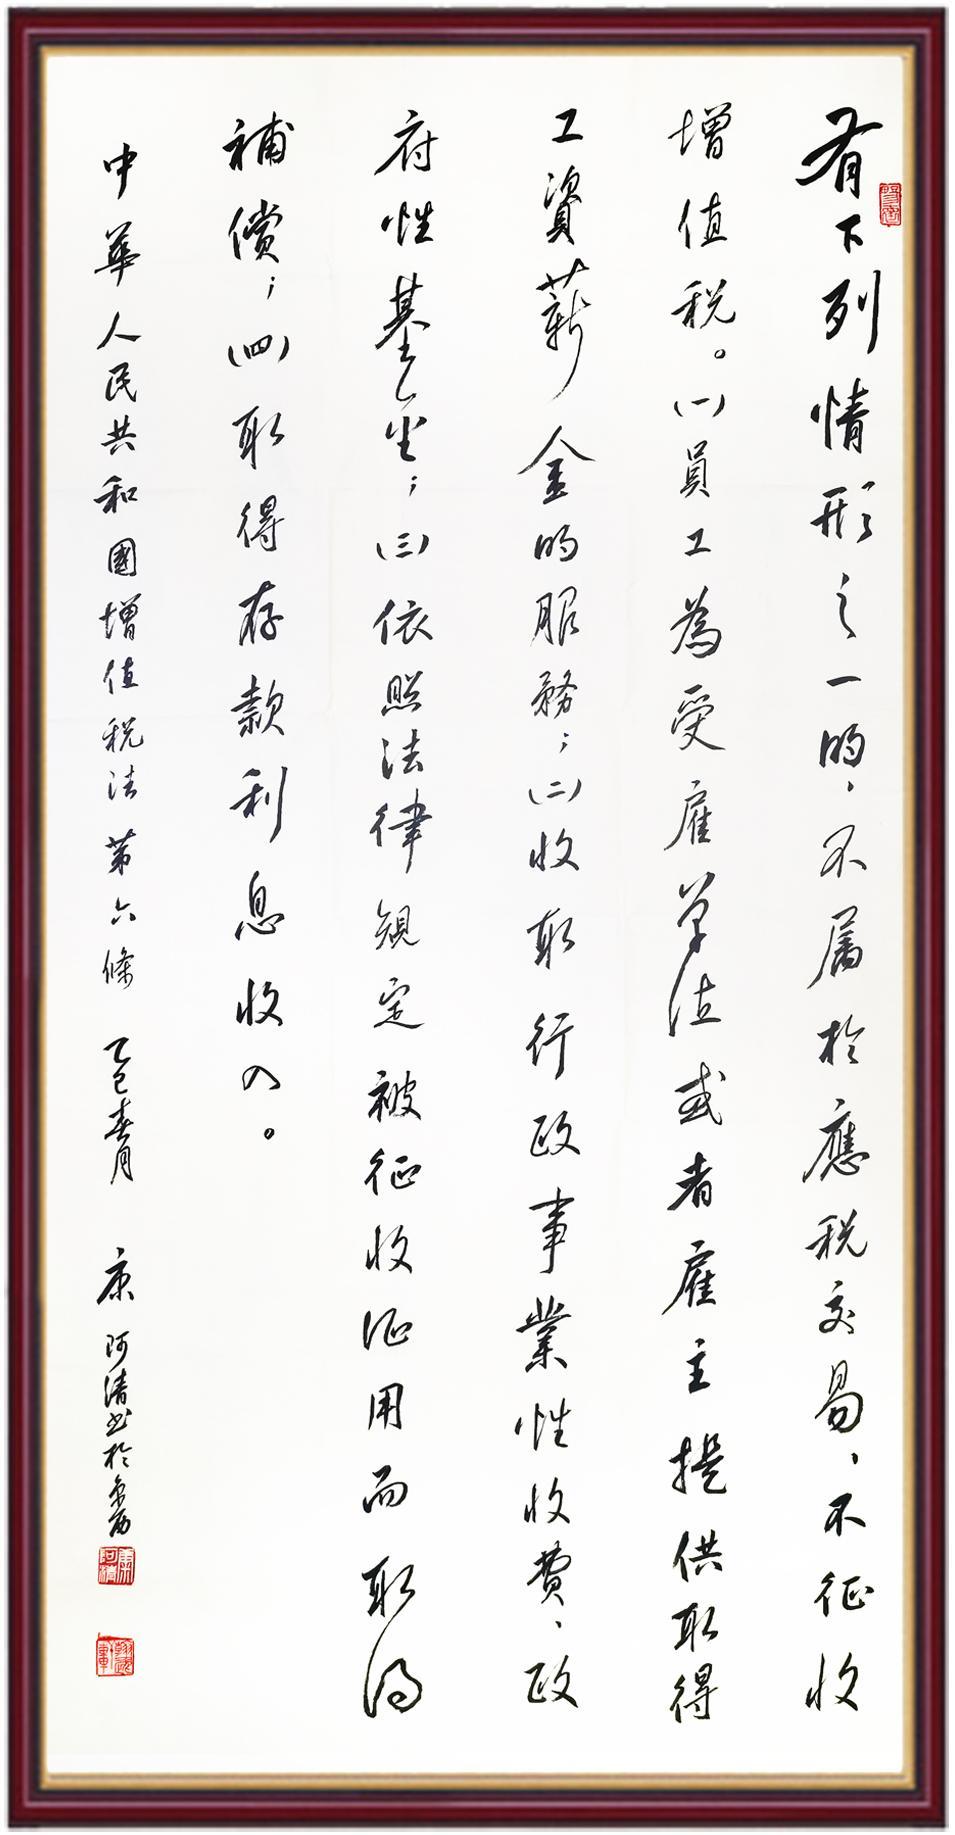 有下列情形之一的，不屬於應税交易，不征收
增值税。(一)員工為受雇单位或者雇主提供取得
工資薪金的服務；(二)收取行政事業性收費、政
府性基金；(三)依照法律規定被征收征用而取得
補償；(四)取得存款利息收入。
中華人民共和國增值税法第六條 乙巳春月 康阿清书於
康阿清